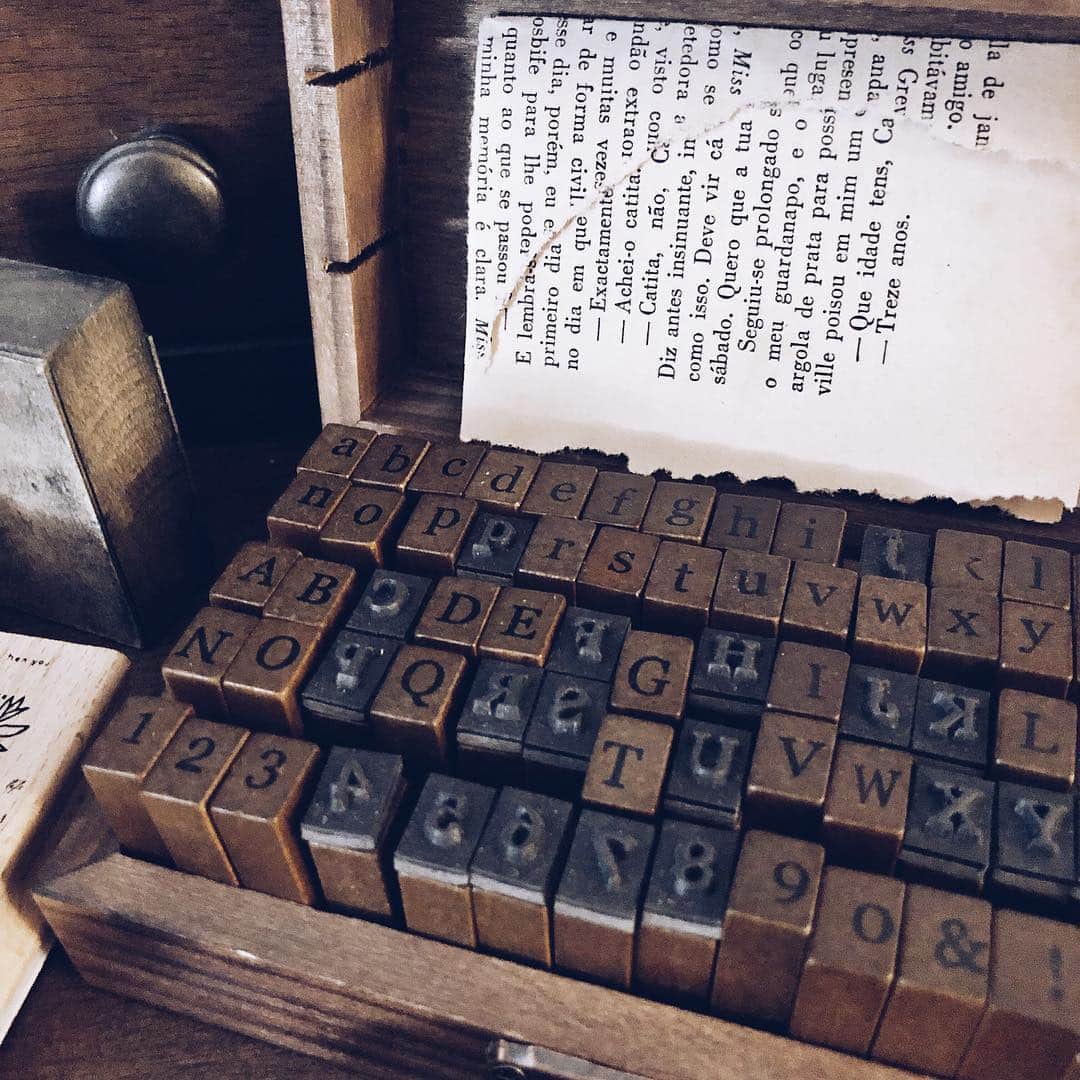 minha memória é clara. Miss
quanto ao que se passou
E lembra
osbife para lhe poder
primeiro dia
sse dia, porém, eu
no dia em que
ar de forma civil
— Exactamente
e muitas vezes
— Achei-o catita
ndão extraor
— Catita, não,
, visto com
Diz antes insinuante, in
etedora a
como isso. Deve vir cá
omo se
sábado. Quero que a tua
, Miss
Seguiu-se prolongado s
o meu guardanapo, e o
argola de prata para possi
ville poisou em mim um
— Que idade tens, Ca
— Treze anos.
co
u luga
presen
, anda
ss Grey
bitávam
o amigo.
la de jan
a b c d e f g h i j k l
n o p q r s t u v w x y
A B C D E F G H I J K L
N O P Q R S T U V W X Y
1 2 3 4 5 6 7 8 9 0 & !